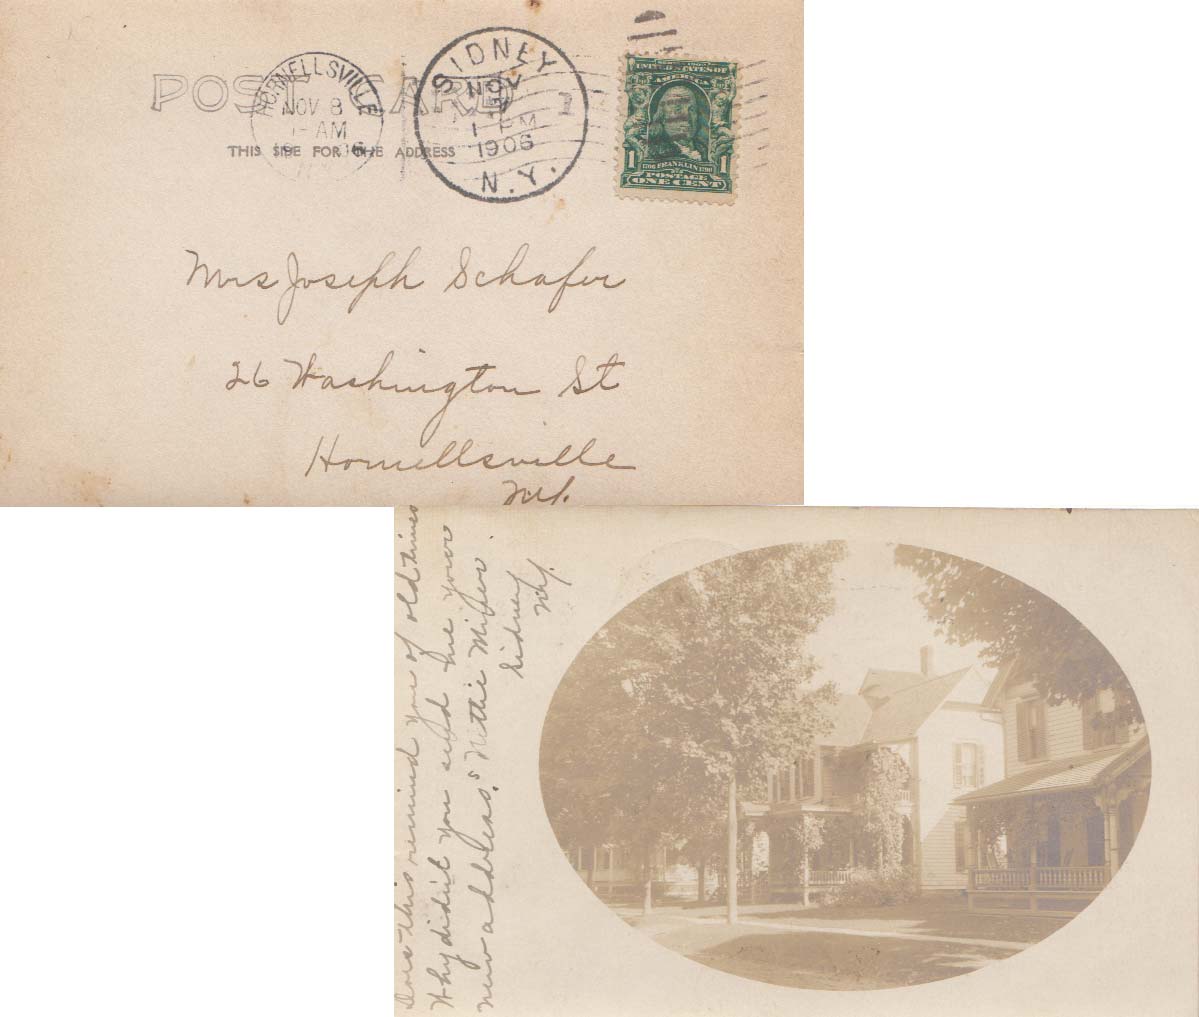 POST CARD
THIS SIDE FOR THE ADDRESS
HORNELLSVILLE
NOV 8
AM
SIDNEY
NOV
1 PM
1906
N.Y.
1
SERIES 1902
UNITED STATES OF
AMERICA
1
1706 FRANKLIN 1790
1
POSTAGE
ONE CENT
Mrs Joseph Schafer
26 Washington St
Hornellsville
N.Y.
Does this remind you of old times
Why didn't you send me your
new address. Nettie
Sidney
N.Y.